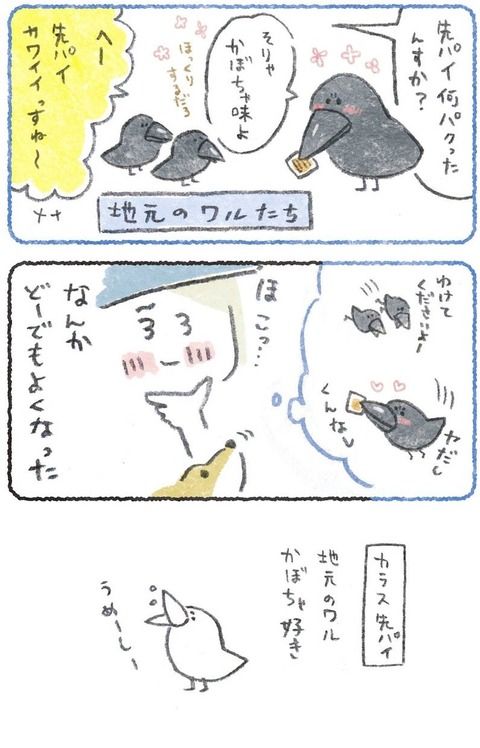 先パイ何パクった
んすか?
そりゃ
かぼちゃ味よ
ほっくり
するだろ
へー
先パイ
カワイイっすねー
地元のワルたち
わけて
くださいよー
ヤだし
くんなし
ほこっ…
なんか
どーでもよくなった
カラス先パイ
地元のワル
かぼちゃ好き
うめーしー